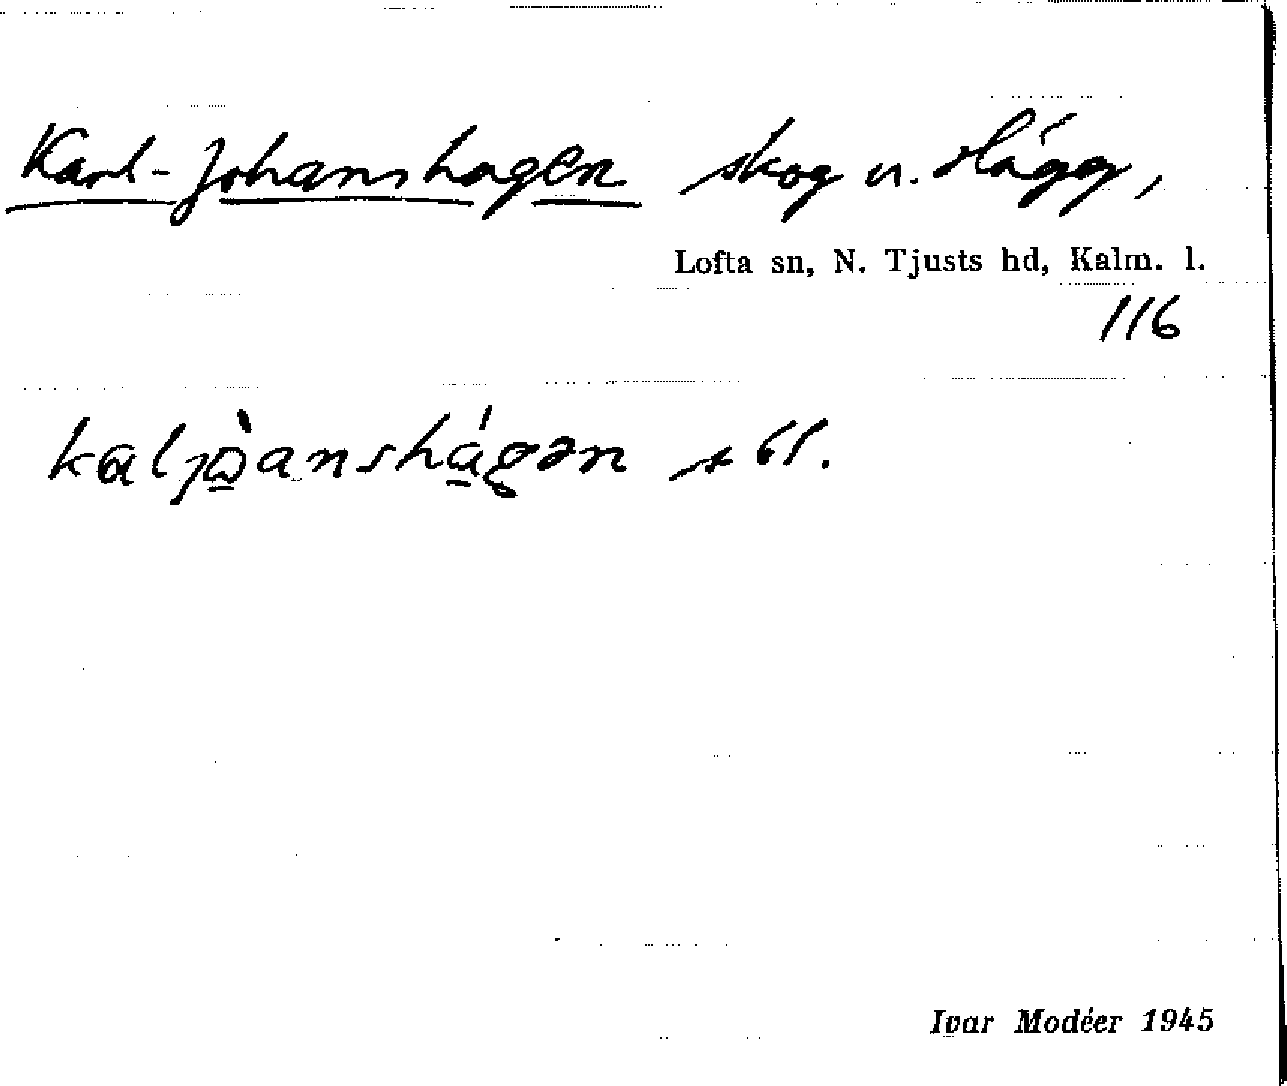 Karl-Johanshagen skog u. Hägg,
Lofta sn, N. Tjusts hd, Kalm. l.
116
kaljòanshágən
Ivar Modéer 1945